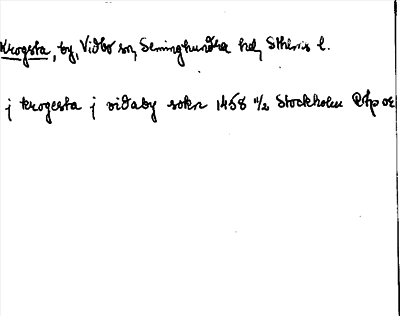 Krogsta, by, Vidbo sn, Seminghundra hd, Sthlms l.
j krogesta j vidaby sokn 1458 11/2 Stockholm Php or